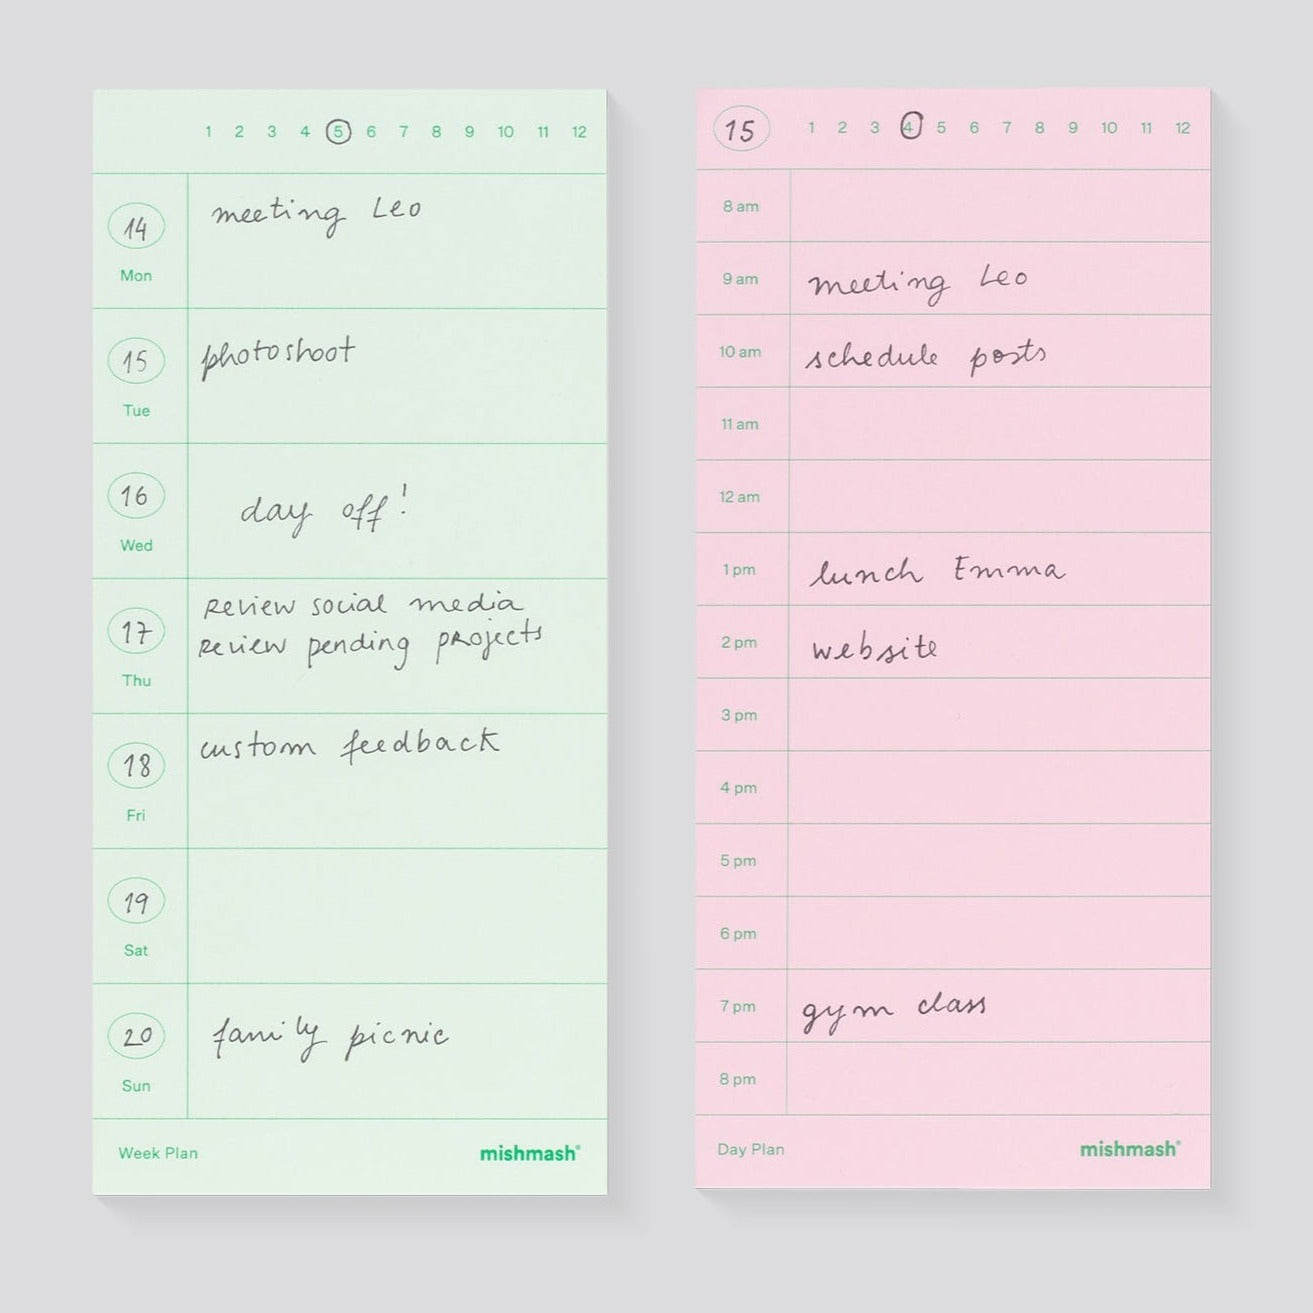 1 2 3 4 5 6 7 8 9 10 11 12
14 Mon meeting Leo
15 Tue photoshoot
16 Wed day off!
17 Thu review social media
review pending projects
18 Fri custom feedback
19 Sat
20 Sun family picnic
Week Plan mishmash®
15 1 2 3 4 5 6 7 8 9 10 11 12
8 am
9 am meeting Leo
10 am schedule posts
11 am
12 am
1 pm lunch Emma
2 pm website
3 pm
4 pm
5 pm
6 pm
7 pm gym class
8 pm
Day Plan mishmash®